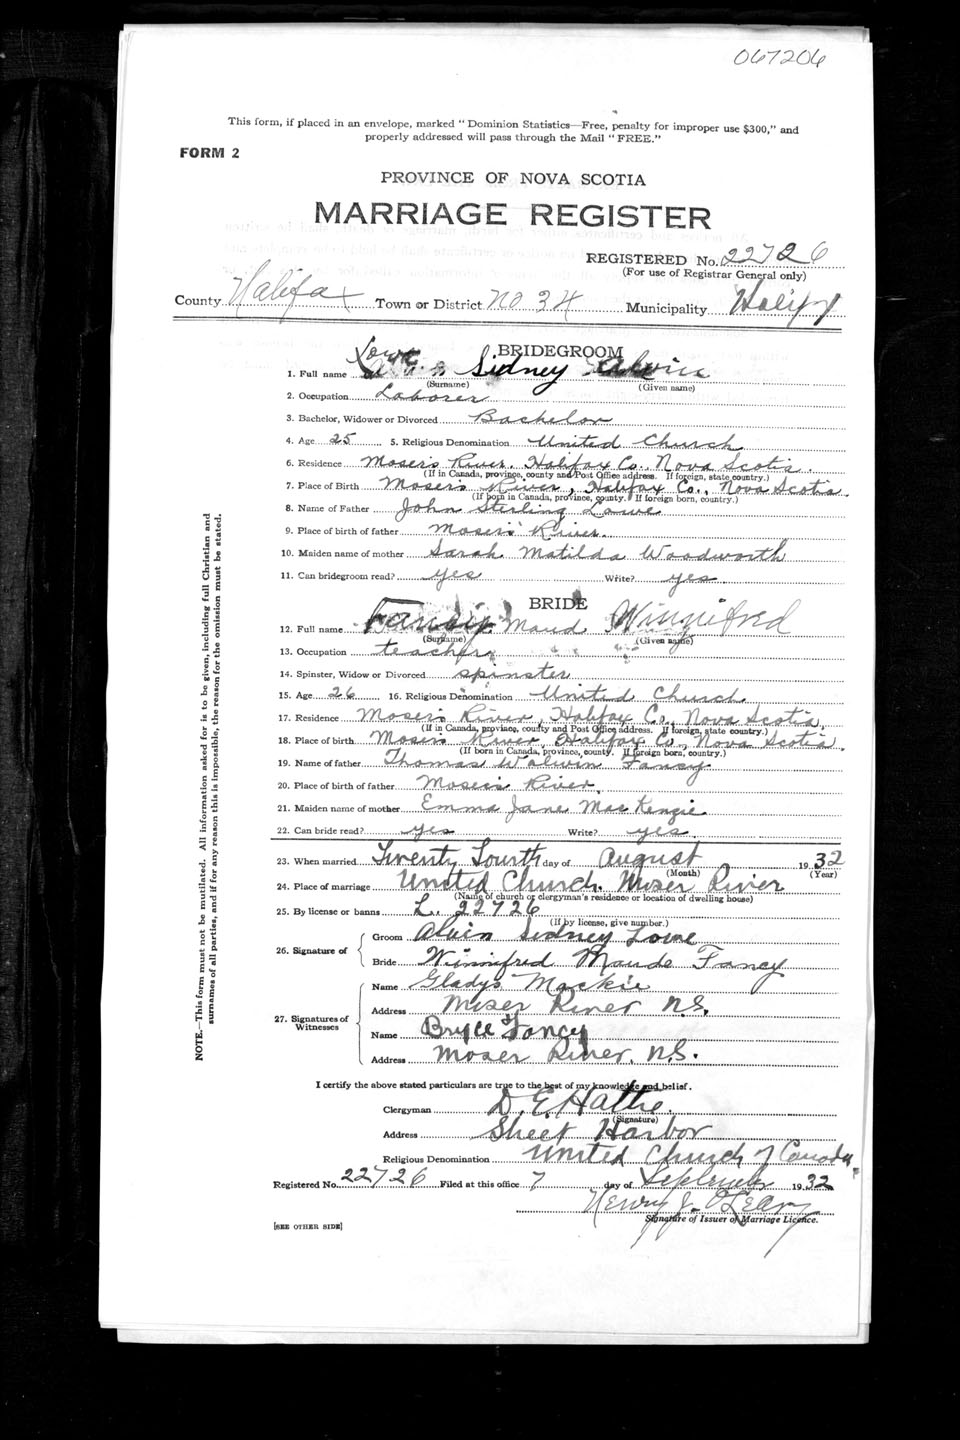 067206
This form, if placed in an envelope, marked "Dominion Statistics—Free, penalty for improper use $300," and
properly addressed will pass through the Mail "FREE."
FORM 2
PROVINCE OF NOVA SCOTIA
MARRIAGE REGISTER
REGISTERED No. 22726
(For use of Registrar General only)
County Halifax Town or District No 34 Municipality Halifax
BRIDEGROOM
1. Full name Lowe Sidney Alvin
(Surname) (Given name)
2. Occupation Laborer
3. Bachelor, Widower or Divorced Bachelor
4. Age 25 5. Religious Denomination United Church
6. Residence Mosers River, Halifax Co., Nova Scotia.
(If in Canada, province, county and Post Office address. If foreign, state country.)
7. Place of Birth Mosers River, Halifax Co., Nova Scotia
(If born in Canada, province, county. If foreign born, country.)
8. Name of Father John Sterling Lowe
9. Place of birth of father Mosers River.
10. Maiden name of mother Sarah Matilda Woodworth
11. Can bridegroom read? yes Write? yes.
BRIDE
12. Full name Fancy Maud Winnifred
(Surname) (Given name)
13. Occupation teacher
14. Spinster, Widow or Divorced spinster
15. Age 26 16. Religious Denomination United Church
17. Residence Mosers River, Halifax Co., Nova Scotia.
(If in Canada, province, county and Post Office address. If foreign, state country.)
18. Place of birth Mosers River, Halifax Co., Nova Scotia.
(If born in Canada, province, county. If foreign born, country.)
19. Name of father Thomas Fancy
20. Place of birth of father Mosers River.
21. Maiden name of mother Emma Jane MacKenzie
22. Can bride read? yes Write? yes.
23. When married Twenty Fourth day of August 1932
(Month) (Year)
24. Place of marriage United Church. Moser River
(Name of church or clergyman's residence or location of dwelling house)
25. By license or banns L. 22726
(If by license, give number.)
26. Signature of Groom Alvin Sidney Lowe
Bride Winnifred Maude Fancy
27. Signatures of Witnesses Name Gladys Mackie
Address Moser River N.S.
Name Bryce Fancy
Address Moser River. N.S.
I certify the above stated particulars are true to the best of my knowledge and belief.
Clergyman D. E. Hattie
(Signature)
Address Sheet Harbor
Religious Denomination United Church of Canada
Registered No. 22726 Filed at this office 7 day of September 1932
Henry J. O'Leary
Signature of Issuer of Marriage Licence.
[SEE OTHER SIDE]
NOTE.—This form must not be mutilated. All information asked for is to be given, including full Christian and
surnames of all parties, and if for any reason this is impossible, the reason for the omission must be stated.